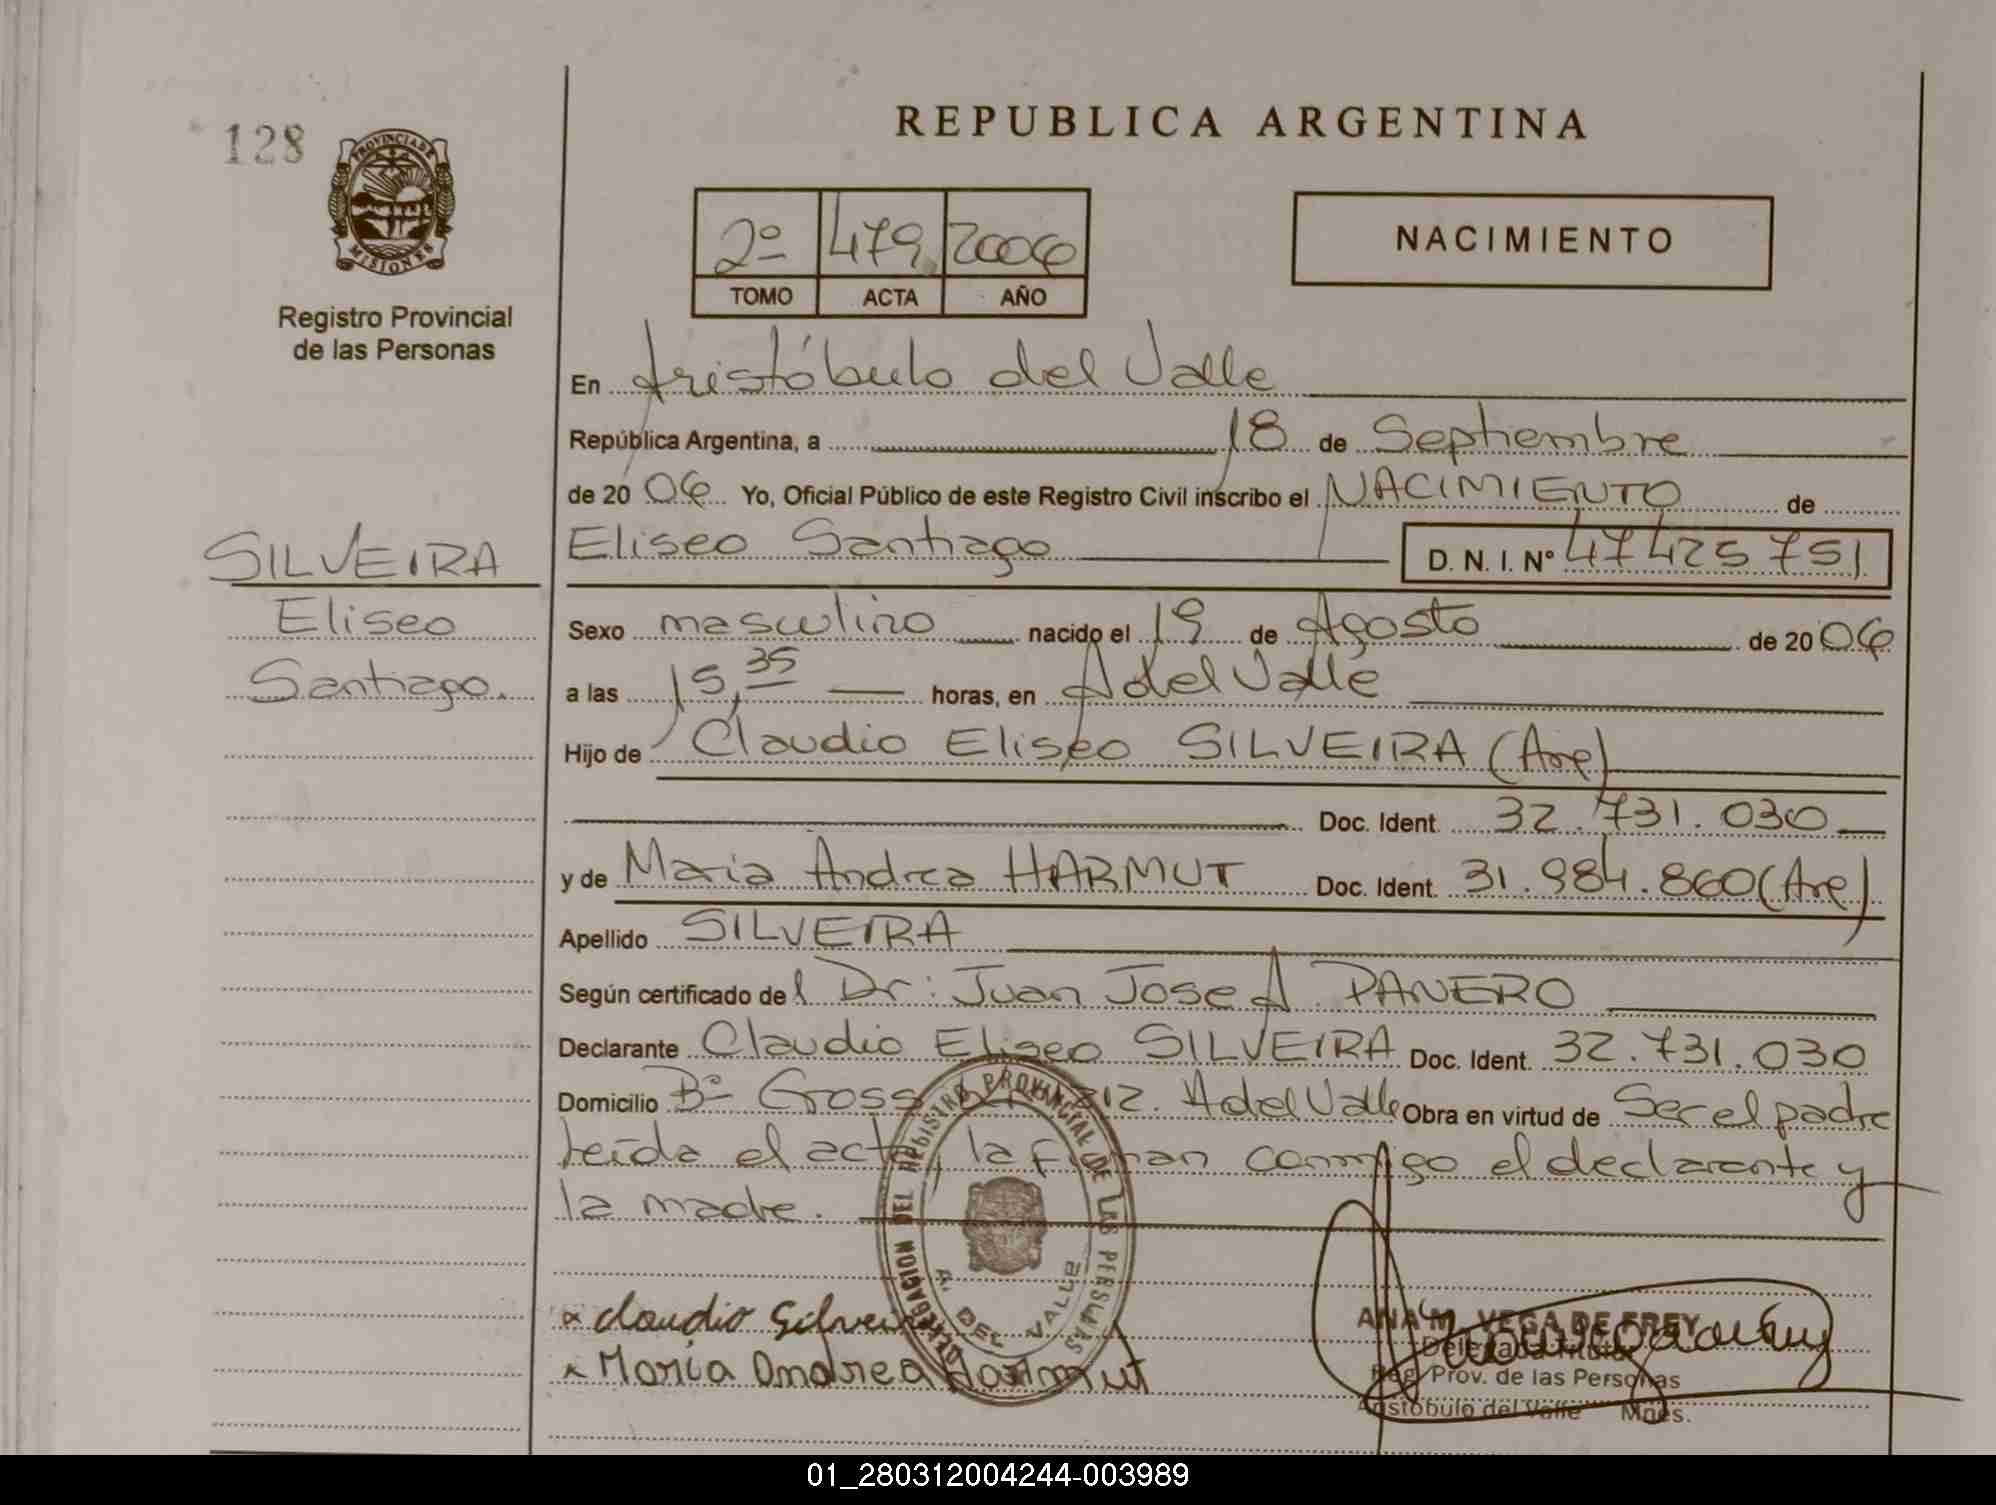 128
PROVINCIA DE
MISIONES
Registro Provincial
de las Personas
REPUBLICA ARGENTINA
2º 479 2006
TOMO ACTA AÑO
NACIMIENTO
En Aristóbulo del Valle
República Argentina, a 18 de Septiembre
de 20 06 Yo, Oficial Público de este Registro Civil inscribo el NACIMIENTO de
SILVEIRA
Eliseo
Santiago.
Eliseo Santiago D. N. I. Nº 47425751
Sexo masculino nacido el 19 de Agosto de 20 06
a las 15,35 horas, en A del Valle
Hijo de Claudio Eliseo SILVEIRA (Arg)
Doc. Ident. 32.731.030
y de Maria Andrea HARMUT Doc. Ident. 31.984.860 (Arg)
Apellido SILVEIRA
Según certificado del Dr: Juan Jose A. PANERO
Declarante Claudio Eliseo SILVEIRA Doc. Ident. 32.731.030
Domicilio Bº Gross 212. A del Valle Obra en virtud de Ser el padre
Leída el acta, la firman conmigo el declarante y
la madre.
DELEGACION DEL REGISTRO PROVINCIAL DE LAS PERSONAS
A. DEL VALLE
x Claudio Silveira
x María Andrea Harmut
ANA M. VEGA DE FREY
Delegada Titular
Reg. Prov. de las Personas
Aristóbulo del Valle Mnes.
01_280312004244-003989